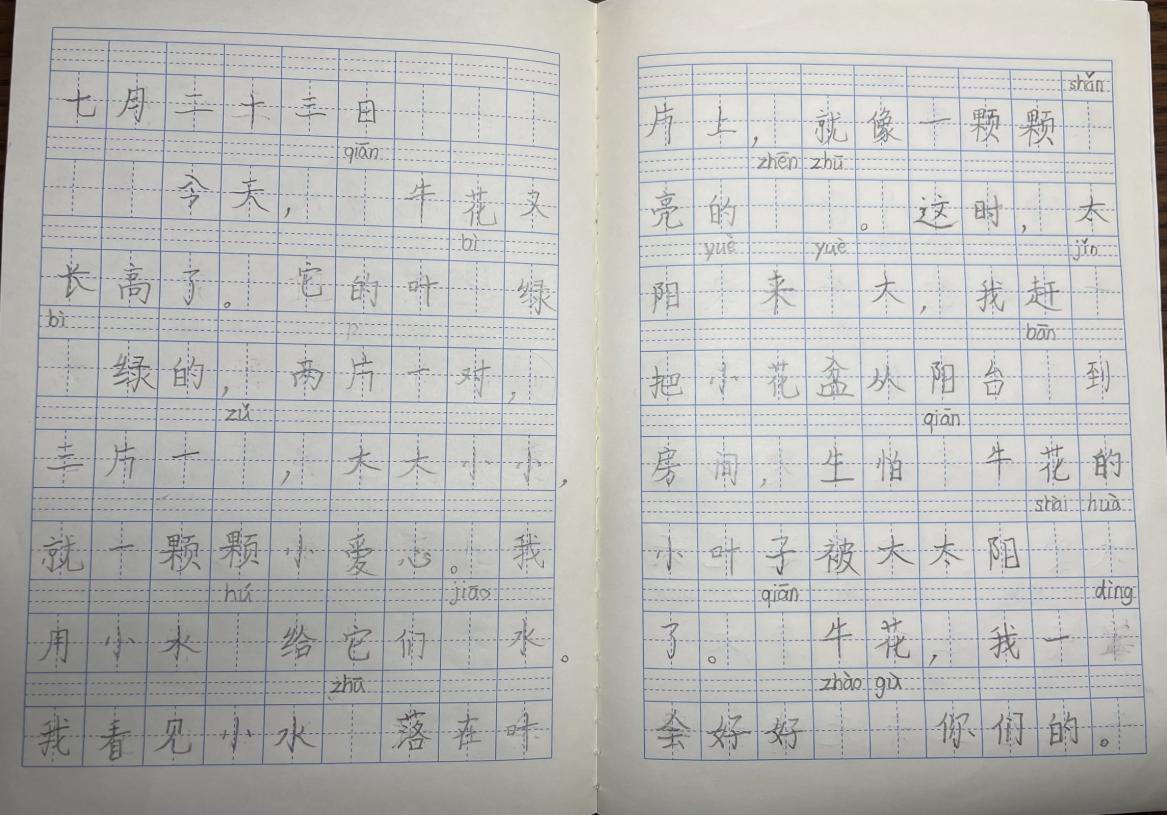 七月二十三日
qiān
今天， 牛花又
bì
长高了。它的叶 绿
bì
绿的，两片一对，
zǔ
三片一 ，大大小小，
就一颗颗小爱心。我
hú jiāo
用小水 给它们 水。
zhū
我看见小水 落在叶
shǎn
片上，就像一颗颗
zhēn zhū
亮的 。这时，太
yuè yuè jǐn
阳 来 大，我赶
bān
把小花盆从阳台 到
qiān
房间，生怕 牛花的
shài huà
小叶子被大太阳
qiān dìng
了。 牛花，我一
zhào gù
会好好 你们的。